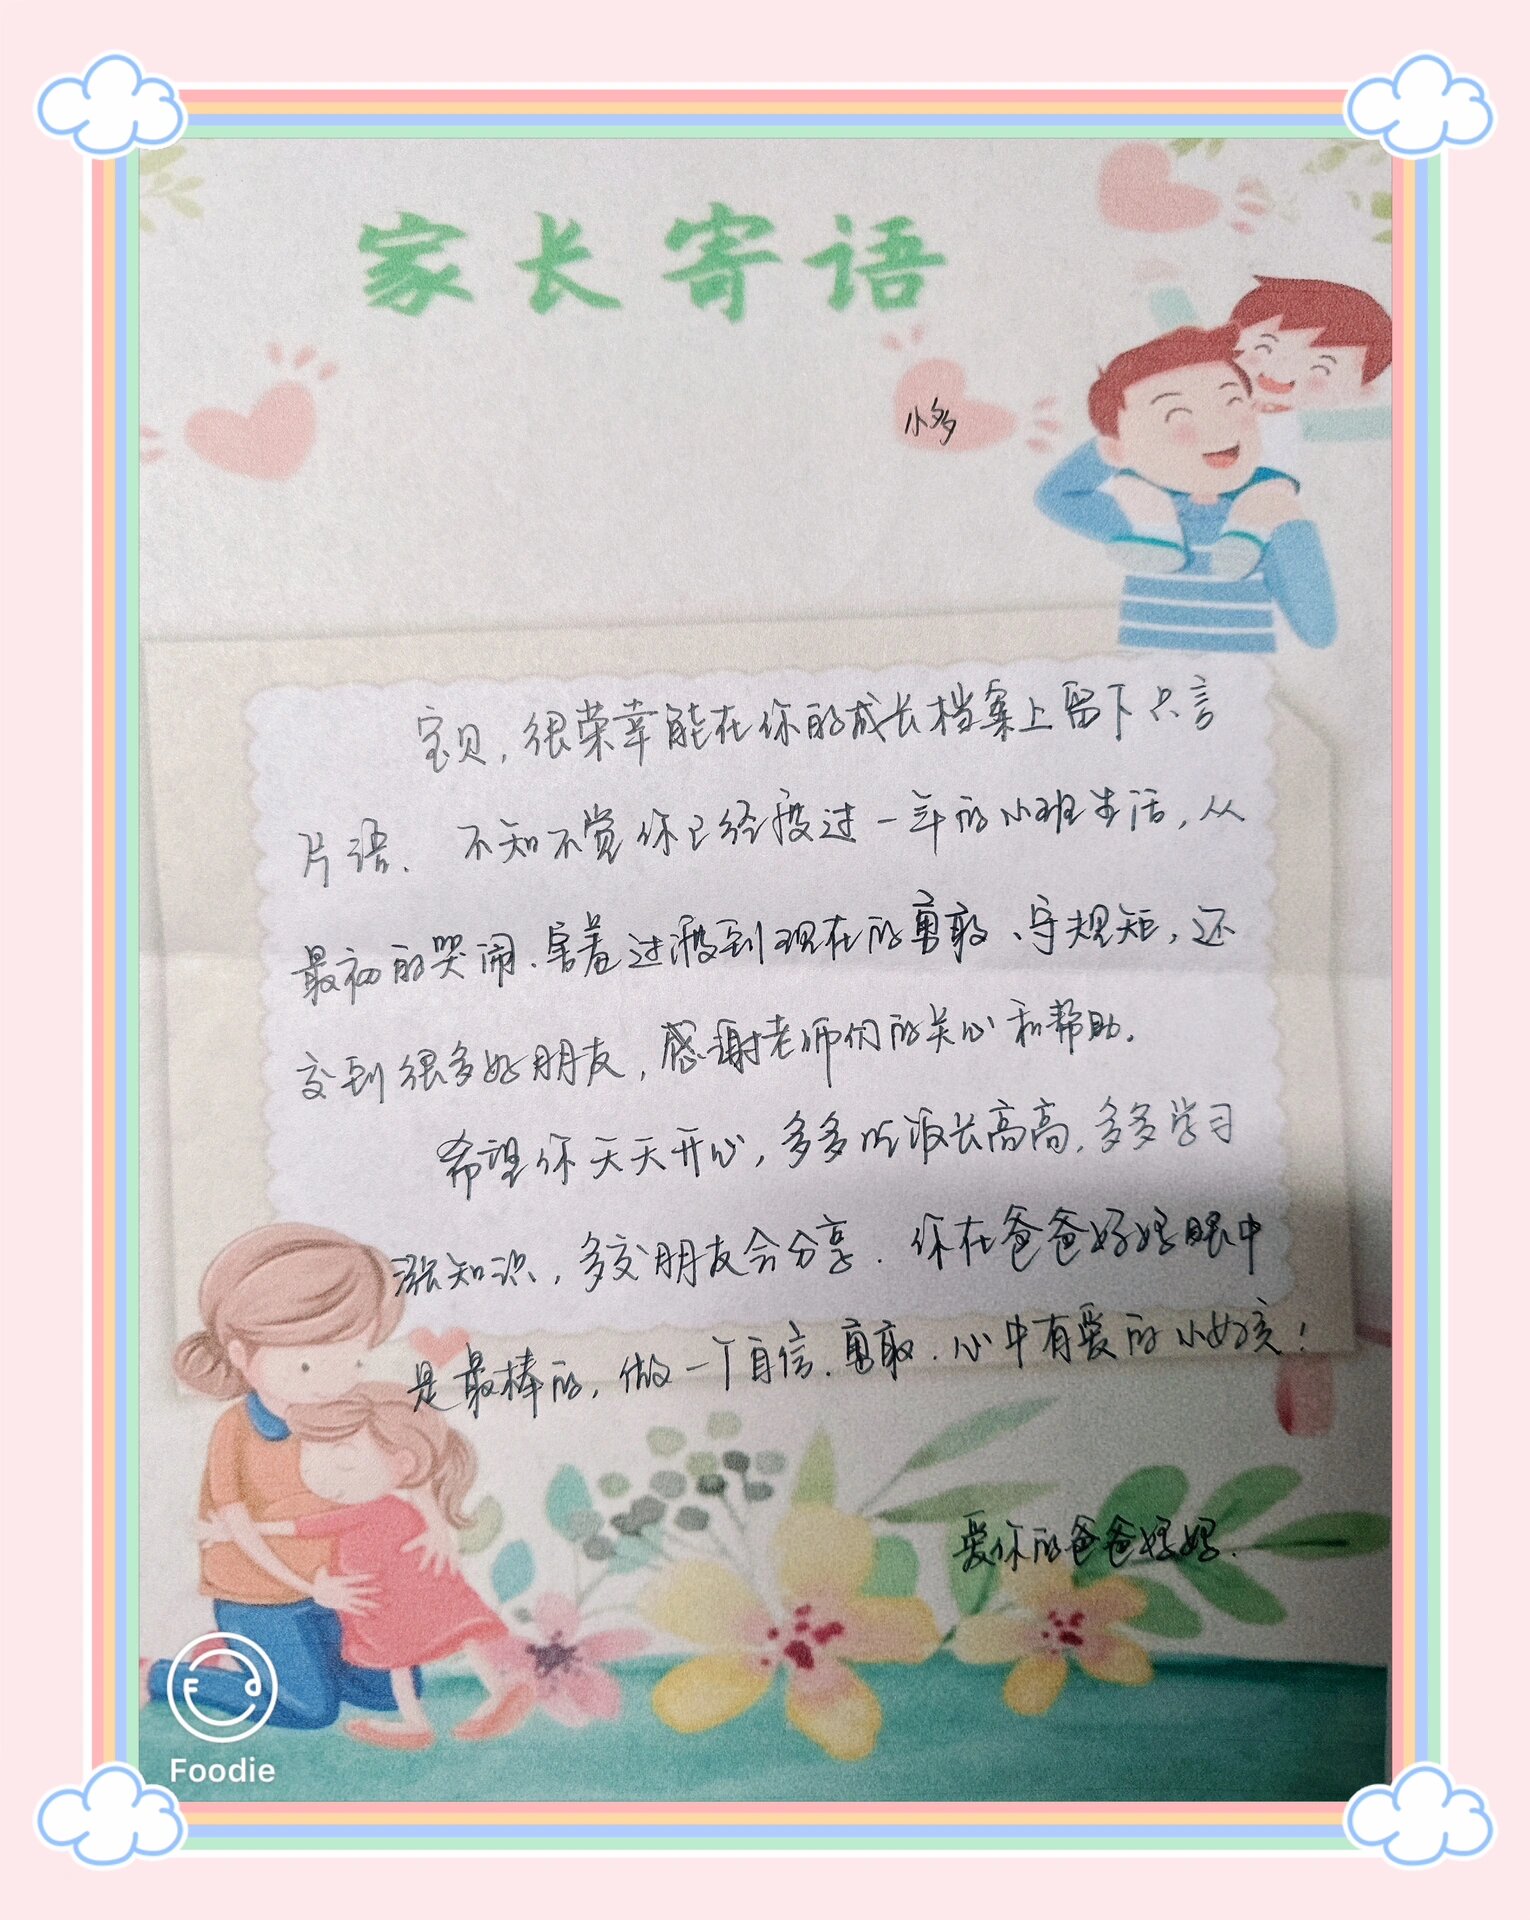 家长寄语
小多
宝贝，很荣幸能在你的成长档案上留下只言
片语、不知不觉你已经度过一年的小班生活，从
最初的哭闹、害羞过渡到现在的勇敢、守规矩，还
交到很多好朋友，感谢老师们的关心和帮助。
希望你天天开心，多多吃饭长高高，多多学习
涨知识，多交朋友会分享．你在爸爸妈妈眼中
是最棒的，做一个自信、勇敢、心中有爱的小女孩！
爱你的爸爸妈妈．
Foodie